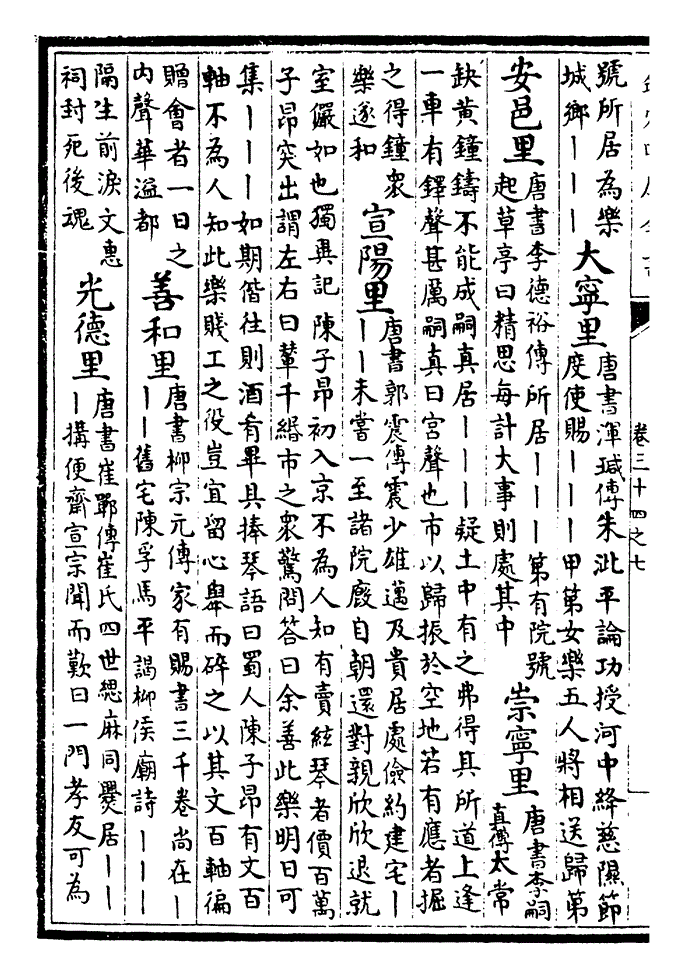 號所居為樂
城鄉丨丨丨
大寧里
唐書渾瑊傳朱泚平論功授河中絳慈隰節
度使賜丨丨丨甲第女樂五人將相送歸第
安邑里
唐書李德裕傳所居丨丨丨第有院號
起草亭曰精思每計大事則處其中
崇寧里
唐書李嗣
真傳太常
缺黃鐘鑄不能成嗣真居丨丨丨疑土中有之弗得其所道上逢
一車有鐸聲甚厲嗣真曰宮聲也市以歸振於空地若有應者掘
之得鐘衆
樂遂和
宣陽里
唐書郭震傳震少雄邁及貴居處儉約建宅丨
丨丨未嘗一至諸院廏自朝還對親欣欣退就
室儼如也獨異記陳子昂初入京不為人知有賣絃琴者價百萬
子昂突出謂左右曰輦千緡市之衆驚問答曰余善此樂明日可
集丨丨丨如期偕往則酒肴畢具捧琴語曰蜀人陳子昂有文百
軸不為人知此樂賤工之役豈宜留心舉而碎之以其文百軸徧
贈會者一日之
內聲華溢都
善和里
唐書柳宗元傳家有賜書三千卷尚在丨
丨丨舊宅陳孚馬平謁柳侯廟詩丨丨丨
隔生前淚文惠
祠封死後魂
光德里
唐書崔鄲傳崔氏四世緦麻同爨居丨丨
丨搆便齋宣宗聞而歎曰一門孝友可為
卷三十四之七